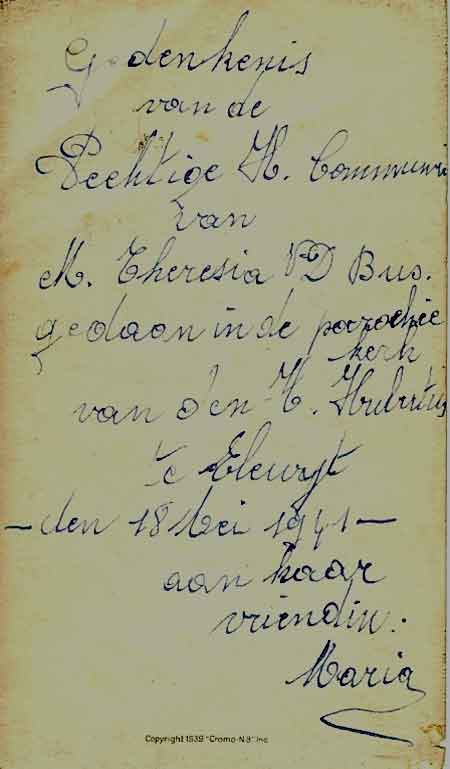 Gedenkenis
van de
Plechtige H. Communie
van
M. Theresia VD Bus.
gedaan in de parochie
kerk
van den H. Hubertus
te Elewyt
- den 18 Mei 1941 -
aan haar
vriendin.
Maria
Copyright 1939 "Cromo-NB" Inc